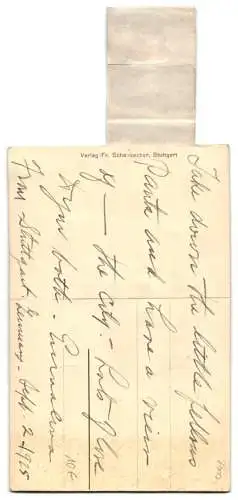 Verlag Fr. Schanbacher, Stuttgart
Take down the little fellows
Pants and have a view
of — the City — Lots of love
to you both —
From Stuttgart, Germany — Sept. 2 — 1925
10¢